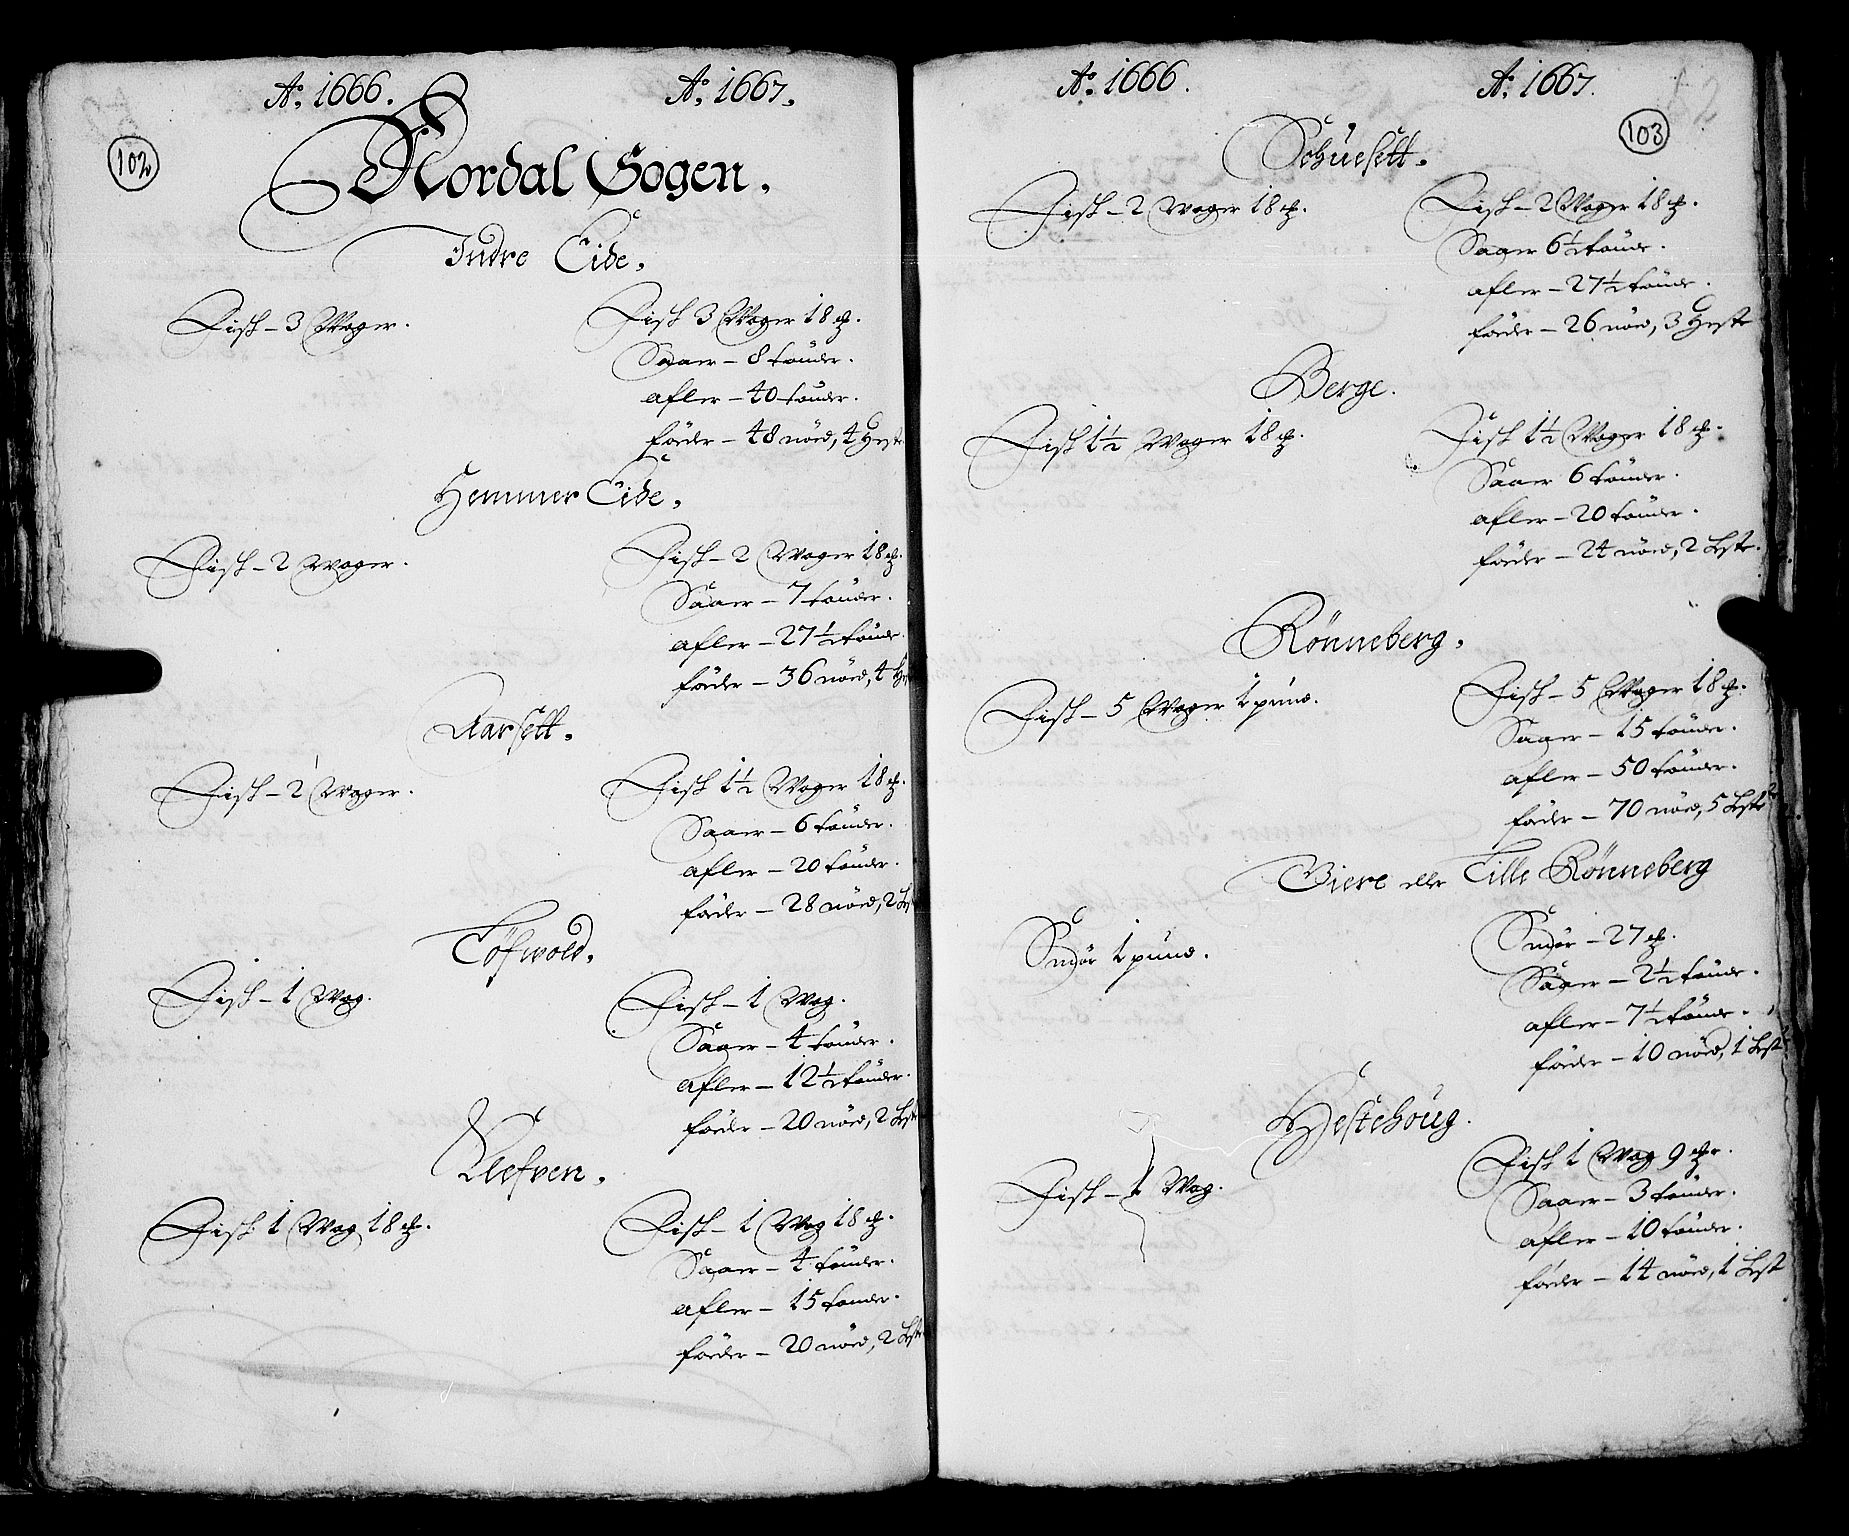 Ao. 1666. Ao. 1667.
102
Nordal Sogen.
Indre Eide.
Fisk - 3 Woger.
Fisk 3 Woger 18 ℔.
Saaer - 8 tønder.
afler - 40 tønder.
føder - 48 nød, 4 Heste
Hemmer Eide.
Fisk - 2 Woger.
Fisk - 2 Woger 18 ℔.
Saaer - 7 tønder.
afler - 27½ tønde.
føder - 36 nød, 4 He
Aarsett.
Fisk - 2 Woger.
Fisk 1½ Woger 18 ℔.
Saaer - 6 tønder.
afler - 20 tønder.
føder - 28 nød, 2 Hest
Töfwold.
Fisk - 1 Wog.
Fisk - 1 Wog.
Saaer - 4 tønder.
afler - 12½ tønder.
føder - 20 nød, 2 Heste
Klefven.
Fisk 1 Wog 18 ℔.
Fisk - 1 Wog 18 ℔.
Saaer - 4 tønder.
afler - 15 tønder.
føder - 20 nød, 2 Heste
Ao. 1666. Ao. 1667.
103
Schuesett.
Fisk - 2 Woger 18 ℔.
Fisk - 2 Woger 18 ℔.
Saaer 6½ tønde.
afler - 27½ tønde.
føder - 26 nød, 3 Heste
Berge.
Fisk 1½ Woger 18 ℔.
Fisk 1½ Woger 18 ℔.
Saaer 6 tønder.
afler - 20 tønder.
føder - 24 nød, 2 Heste.
Rönneberg.
Fisk - 5 Woger 1 pund.
Fisk - 5 Woger 18 ℔.
Saaer - 15 tønder.
afler - 50 tønder.
føder - 70 nød, 5 Heste
Viere eller Lille Rönneberg
Smør 1 pund.
Smør - 27 ℔.
Saaer - 2½ tønde.
afler - 7½ tønde.
føder - 10 nød, 1 Hest
Hestehoug.
Fisk - 1 Wog.
Fisk 1 Wog 9 ℔.
Saaer - 3 tønder.
afler - 10 tønder.
føder - 14 nød, 1 Hest